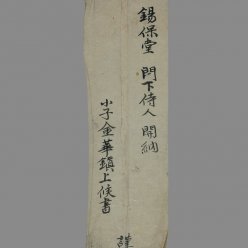 錫保堂 門下侍人 開納
小子金華鎭上候書
謹